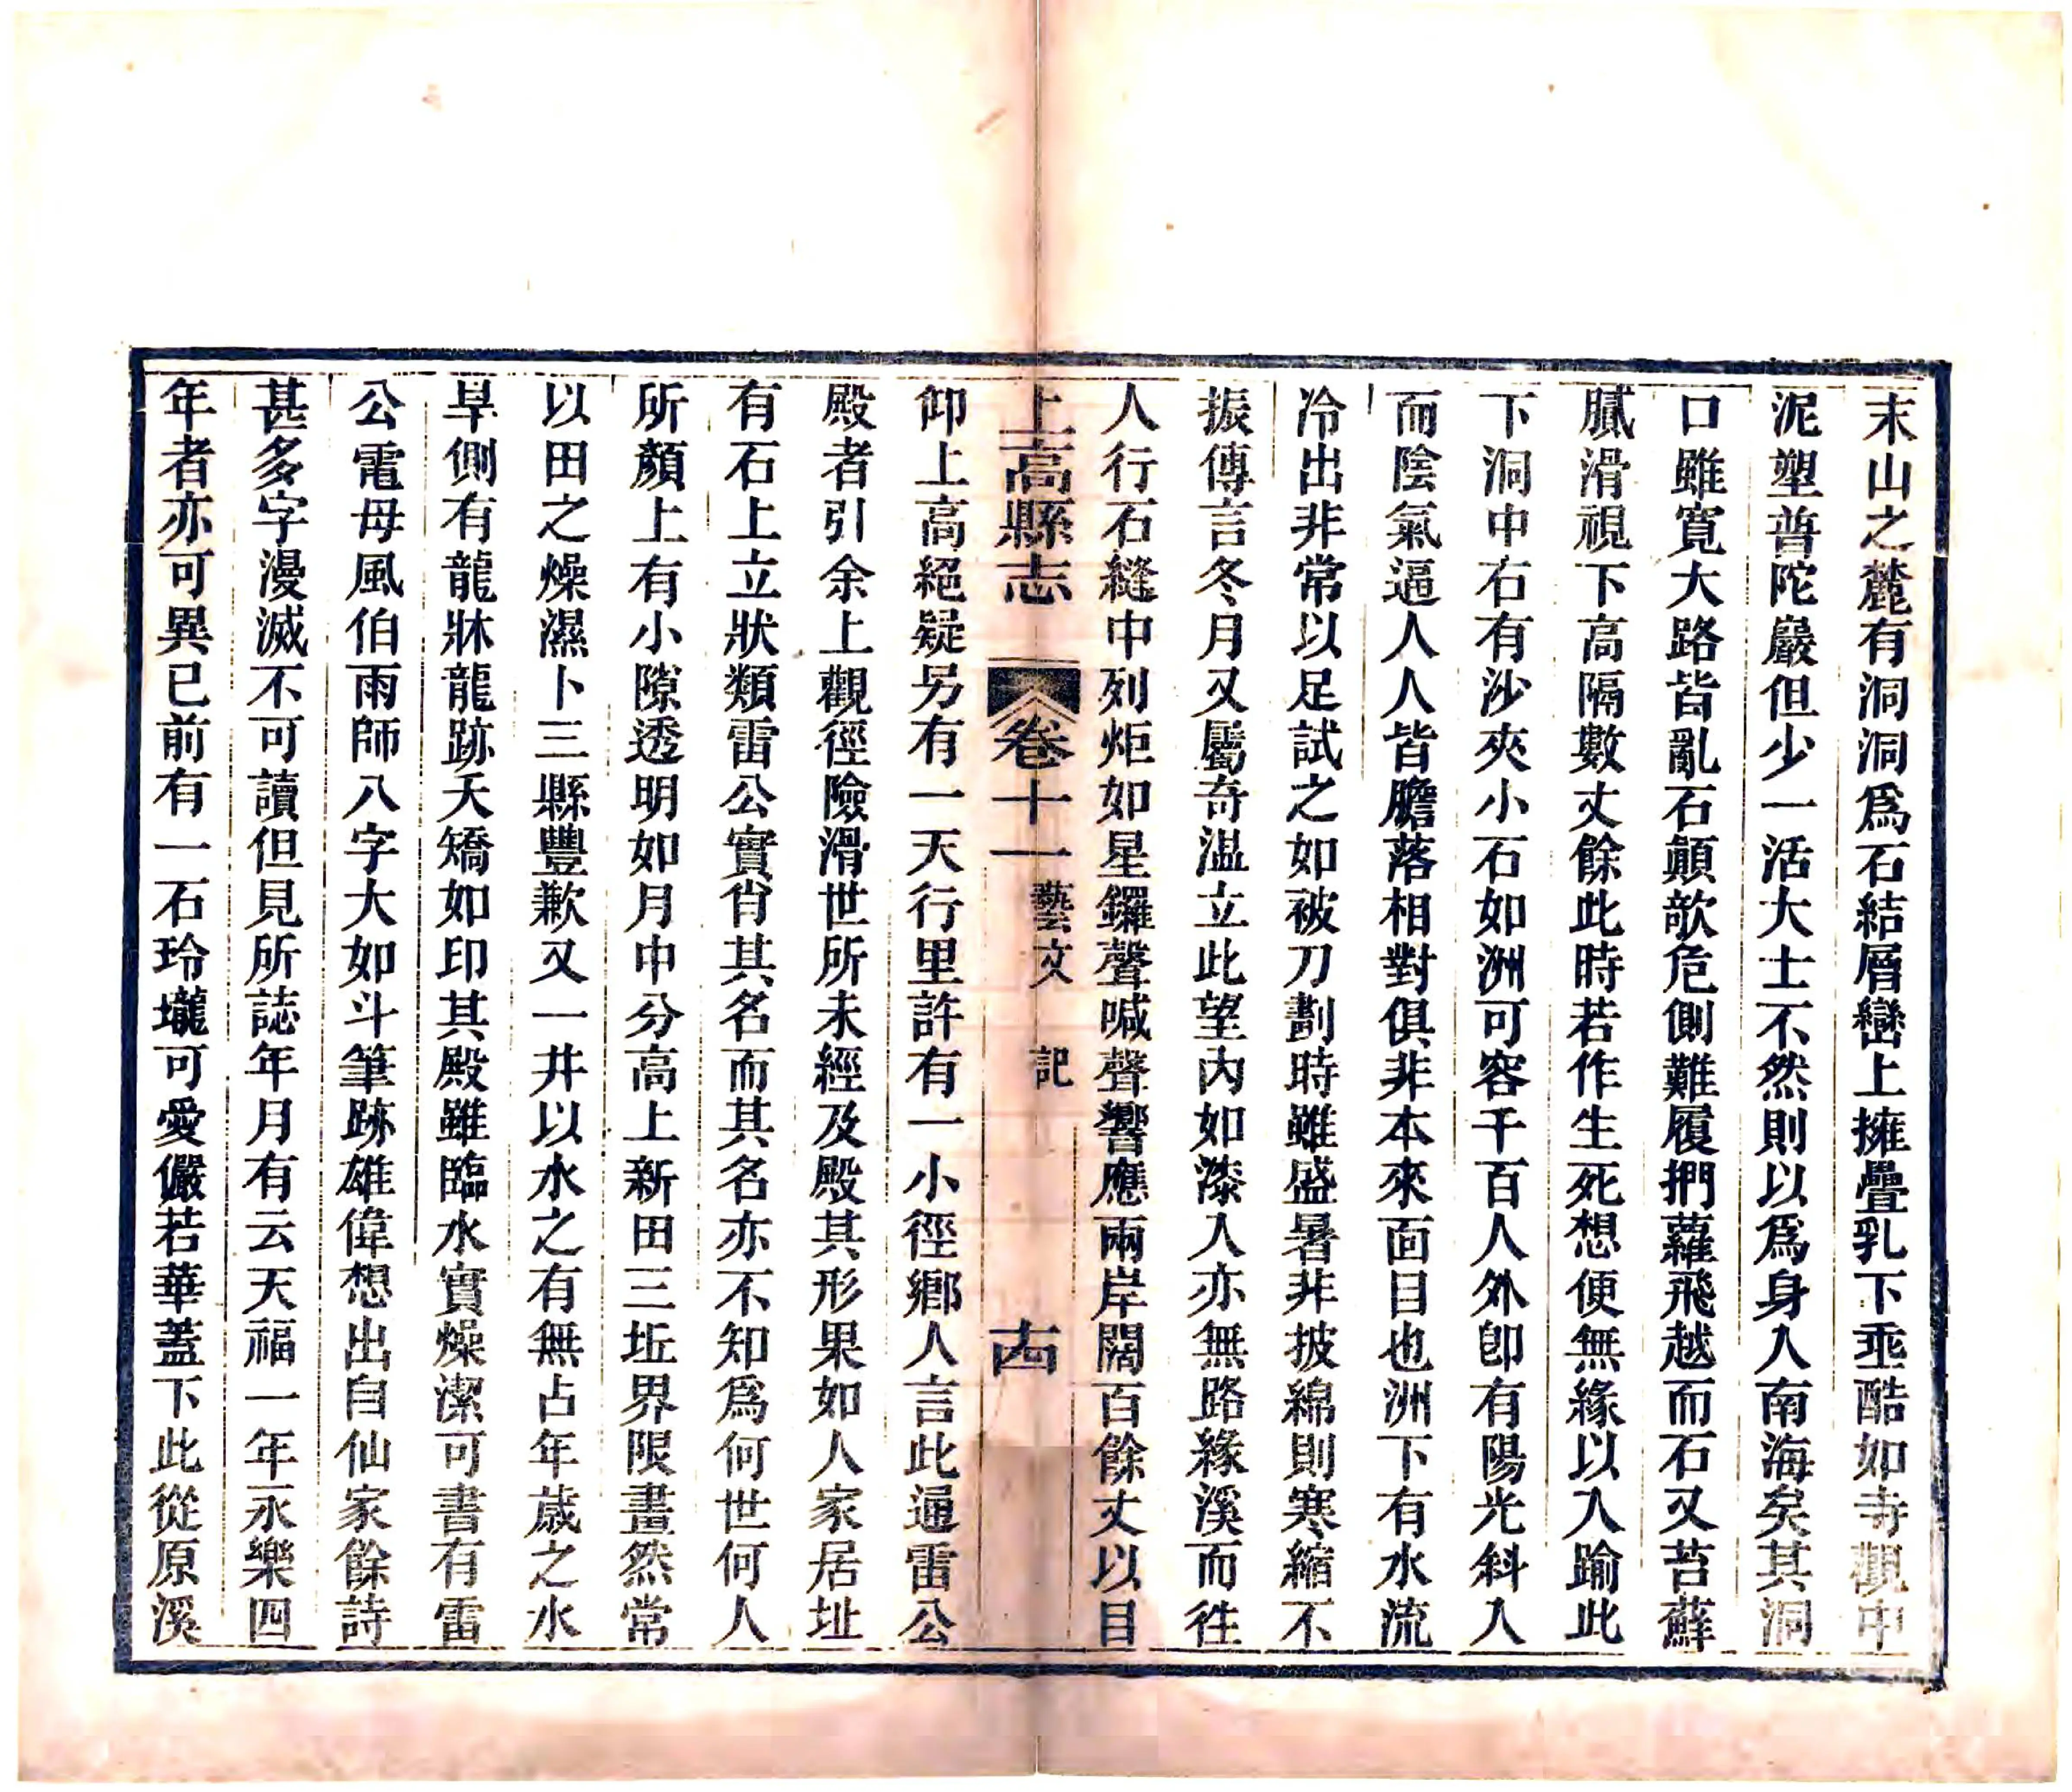 末山之麓有洞洞爲石結層巒上擁疊乳下垂酷如寺觀中
泥塑普陀巖但少一活大士不然則以爲身入南海矣其洞
口雖寬大路皆亂石顛欹危側難履捫蘿飛越而石又苔蘚
膩滑視下高隔數丈餘此時若作生死想便無緣以入踰此
下洞中右有沙夾小石如洲可容千百人外卽有陽光斜入
而陰氣逼人人皆膽落相對俱非本來面目也洲下有水流
冷出非常以足試之如被刀劃時雖盛暑非披綿則寒縮不
振傳言冬月又屬奇溫立此望內如漆入亦無路緣溪而徃
人行石縫中列炬如星鑼聲喊聲響應兩岸闊百餘丈以目
上高縣志
卷十一
藝文
記
十四
仰上高絕疑另有一天行里許有一小徑鄉人言此通雷公
殿者引余上觀徑險滑世所未經及殿其形果如人家居址
有石上立狀類雷公實肖其名而其名亦不知爲何世何人
所顏上有小隙透明如月中分高上新田三坵界限畫然常
以田之燥濕卜三縣豐歉又一井以水之有無占年歲之水
旱側有龍牀龍跡夭矯如印其殿雖臨水實燥潔可書有雷
公電母風伯雨師八字大如斗筆跡雄偉想出自仙家餘詩
甚多字漫滅不可讀但見所誌年月有云天福一年永樂四
年者亦可異已前有一石玲瓏可愛儼若華蓋下此從原溪